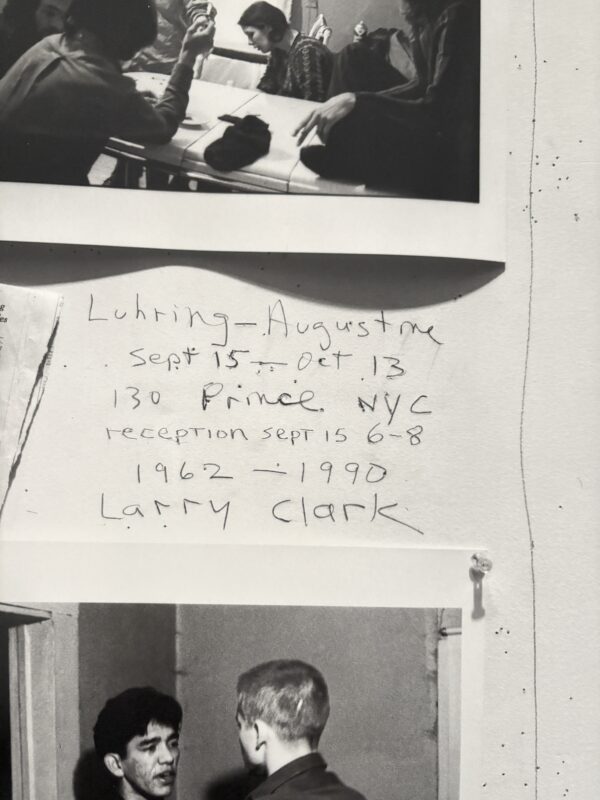 Luhring-Augustine
Sept 15 - Oct 13
130 Prince NYC
reception Sept 15 6-8
1962 - 1990
Larry Clark